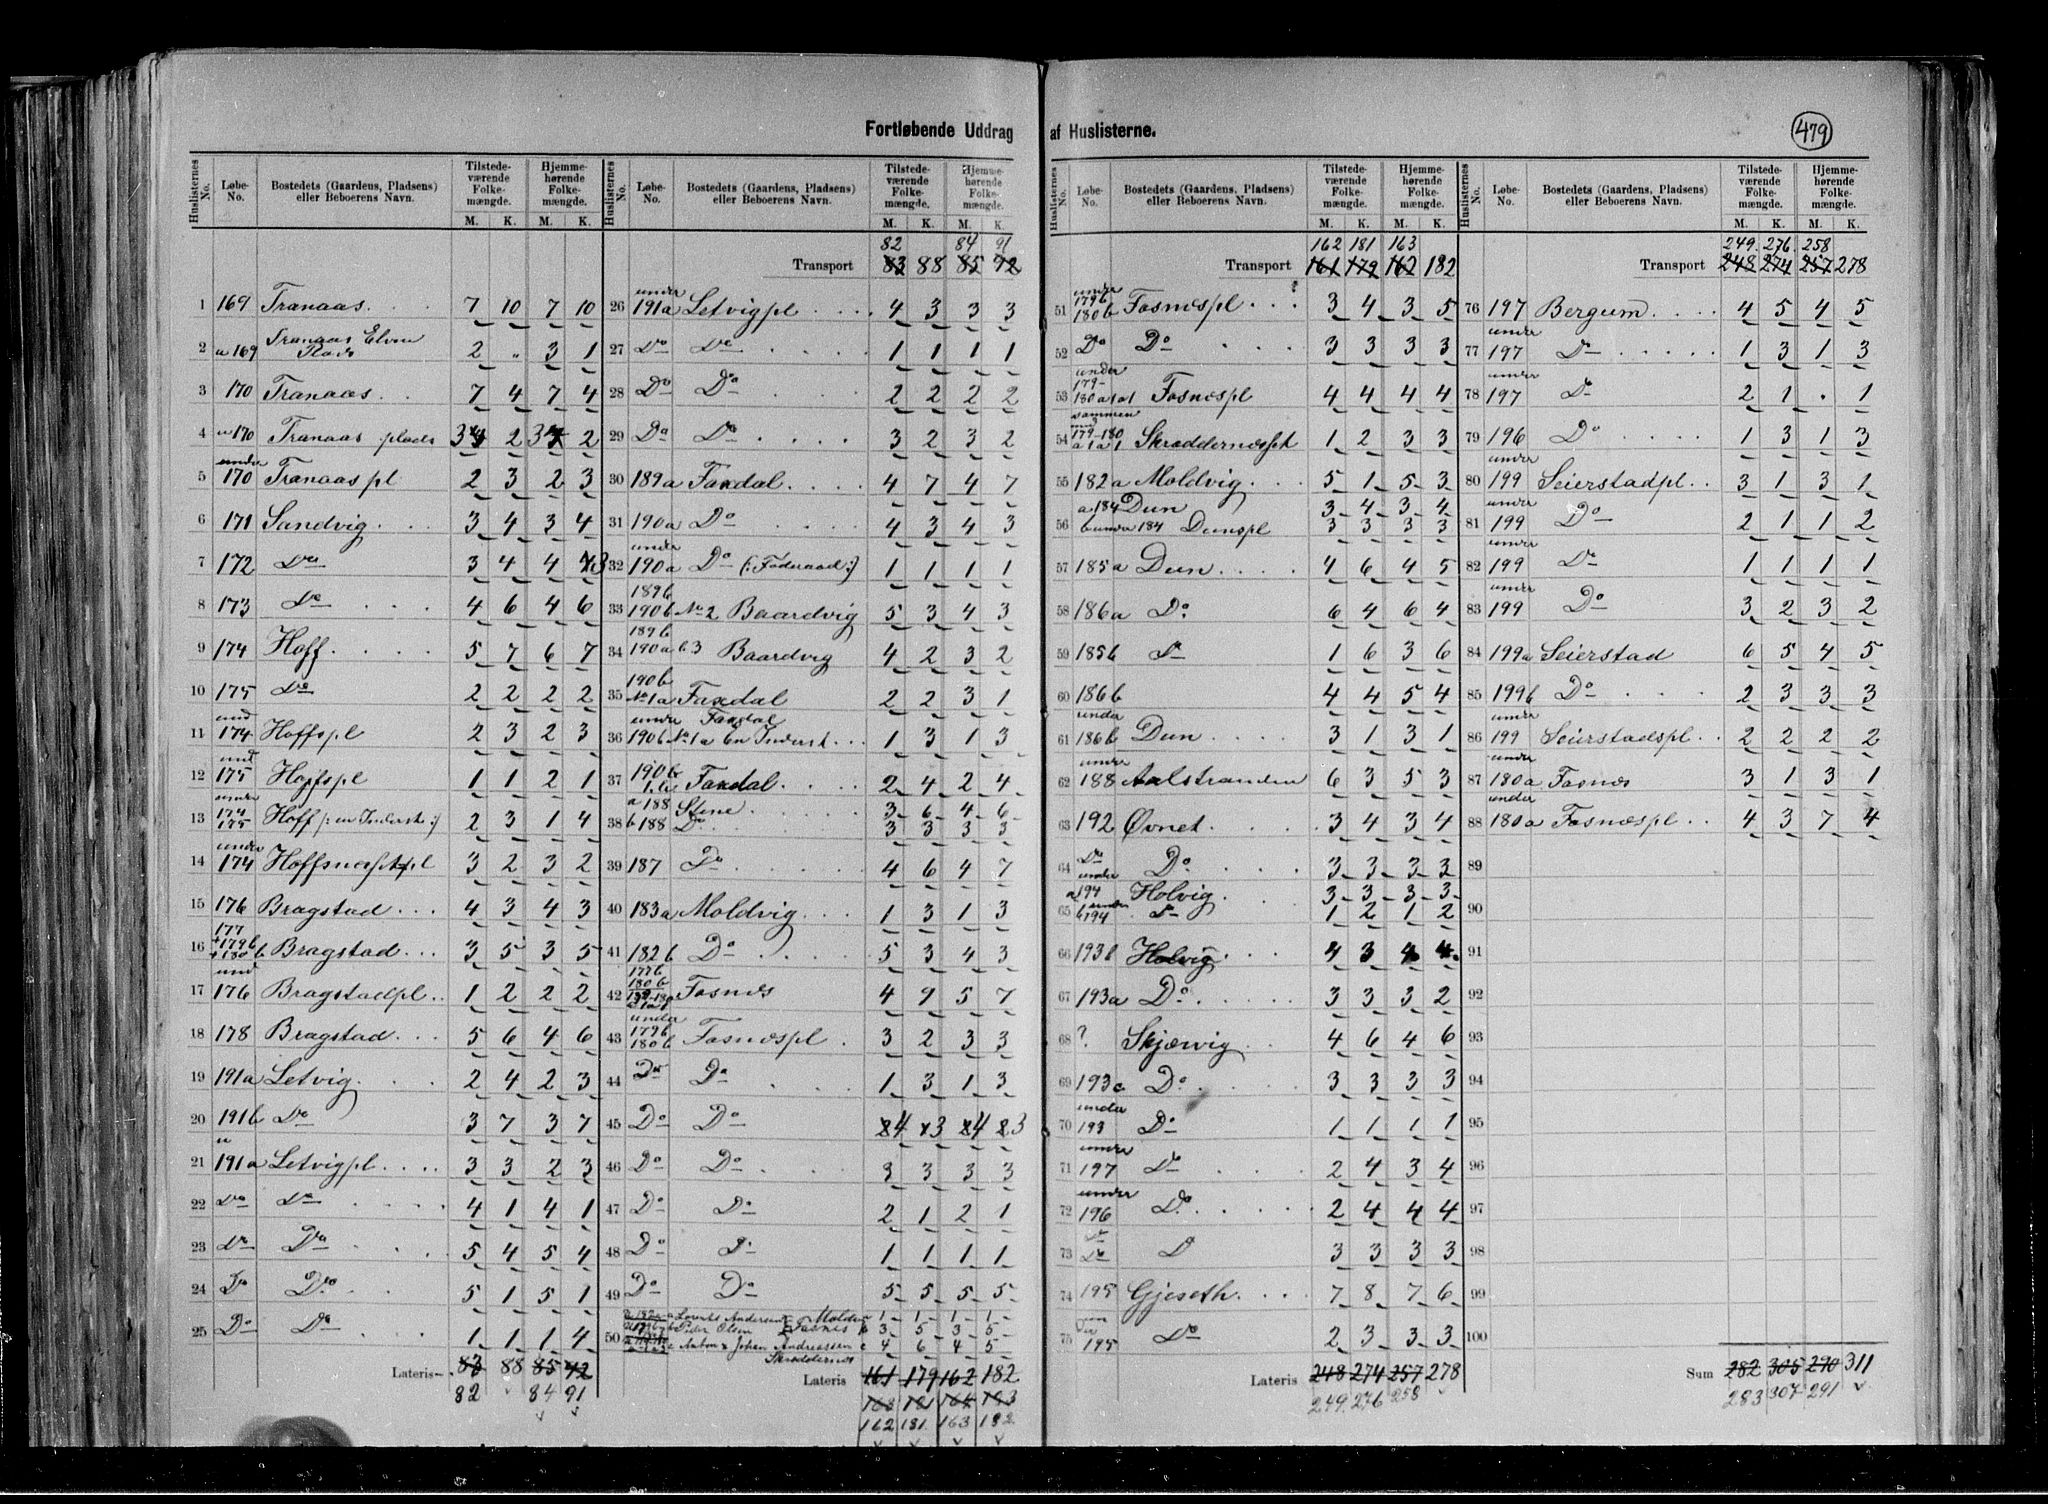 479
Fortløbende Uddrag af Huslisterne.
Huslisternes No. Løbe-No. Bostedets (Gaardens, Pladsens) eller Beboerens Navn. Tilstedeværende Folkemængde. M. K. Hjemmehørende Folkemængde. M. K.
1 169 Tranaas 7 10 7 10
2 u 169 Tranaas Elven Plads 2 " 3 1
3 170 Tranaas 7 4 7 4
4 u 170 Tranaas plads 3 2 3 2
5 under 170 Tranaas pl 2 3 2 3
6 171 Sandvig 3 4 3 4
7 172 Do 3 4 4 3
8 173 Do 4 6 4 6
9 174 Hoff 5 7 6 7
10 175 Do 2 2 2 2
11 und 174 Hoffspl 2 3 2 3
12 und 175 Hoffspl 1 1 2 1
13 under 174 175 Hoff (: en Inderst :) 2 3 1 4
14 under 174 3 2 3 2
15 176 Bragstad 4 3 4 3
16 177 +179b +180b Bragstad 3 5 3 5
17 und 176 Bragstadpl 1 2 2 2
18 178 Bragstad 5 6 4 6
19 191a Letvig 2 4 2 3
20 191b Do 3 7 3 7
21 u 191a Letvigpl 3 3 2 3
22 Do Do 4 1 4 1
23 Do Do 5 4 5 4
24 Do Do 5 1 5 1
25 Do Do 1 1 1 4
Lateris 83 88 85 92
82 84 91
Huslisternes No. Løbe-No. Bostedets (Gaardens, Pladsens) eller Beboerens Navn. Tilstedeværende Folkemængde. M. K. Hjemmehørende Folkemængde. M. K.
82 84 91
Transport 83 88 85 92
26 under 191a Letvigpl 4 3 3 3
27 Do Do 1 1 1 1
28 Do Do 2 2 2 2
29 Do Do 3 2 3 2
30 189a Faxdal 4 7 4 7
31 190a Do 4 3 4 3
32 under 190a Do (: Føderaad :) 1 1 1 1
33 189b 190b No 2 Baardvig 5 3 4 3
34 189b 190a b3 Baardvig 4 2 3 2
35 190b No 1a Faxdal 2 2 3 1
36 under Faxdal 190b No 1a en Inderst 1 3 1 3
37 190b Faxdal 2 4 2 4
38 a 188 Stene 3 6 4 6
b 188 Do 3 3 3 3
39 187 Do 4 6 4 7
40 183a Moldvig 1 3 1 3
41 182b Do 5 3 4 3
42 180b Fosnes 4 9 5 7
43 under 179b 180b Fosnespl 3 2 3 3
44 Do Do 1 3 1 3
45 Do Do 4 3 4 3
46 Do Do 3 3 3 3
47 Do Do 2 1 2 1
48 Do Do 1 1 1 1
49 Do Do 5 5 5 5
50 Lorents Andersen 1 1 1 1
Peder Olsen Fosnes b 3 5 3 5
Johan Andreassen c 4 6 4 5
Lateris 161 179 162 182
163 181 164 183
162 181 163 182
Huslisternes No. Løbe-No. Bostedets (Gaardens, Pladsens) eller Beboerens Navn. Tilstedeværende Folkemængde. M. K. Hjemmehørende Folkemængde. M. K.
162 181 163
Transport 161 179 162 182
51 under 179b 180b Fosnespl 3 4 3 5
52 Do Do 3 3 3 3
53 under 179- 180a 1a1 Fosnespl 4 4 4 4
54 sammen 179-180 a 1 a 1 1 2 3 3
55 182a Moldvig 5 1 5 3
56 a 184 Dun 3 4 3 4
b under 184 Dunspl 3 3 3 3
57 185a Dun 4 6 4 5
58 186a Do 6 4 6 4
59 185b Do 1 6 3 6
60 186b 4 4 5 4
61 under 186b Dun 3 1 3 1
62 under 188 Aalstranden 6 3 5 3
63 192 Øvnet 3 4 3 4
64 Do Do 3 3 3 3
65 under a 194 Holvig 3 3 3 3
b under 194 Do 1 2 1 2
66 193b Holvig 4 3 4 4
67 193a Do 3 3 3 2
68 ? Skjærvig 4 6 4 6
69 193c Do 3 3 3 3
70 under 193 Do 1 1 1 1
71 under 197 Do 2 4 3 4
72 under 196 Do 2 4 4 4
73 Do Do D 3 3 3 3
74 195 Gjeseth 7 8 7 6
75 195 Do 2 3 3 3
Lateris 248 274 257 278
249 276 258
Huslisternes No. Løbe-No. Bostedets (Gaardens, Pladsens) eller Beboerens Navn. Tilstedeværende Folkemængde. M. K. Hjemmehørende Folkemængde. M. K.
249 276 258
Transport 248 274 257 278
76 197 Bergum 4 5 4 5
77 under 197 Do 1 3 1 3
78 under 197 Do 2 1 . 1
79 196 Do 1 3 1 3
80 under 199 Seierstadpl 3 1 3 1
81 under 199 Do 2 1 1 2
82 under 199 Do 1 1 1 1
83 under 199 Do 3 2 3 2
84 199a Seierstad 6 5 4 5
85 199b Do 2 3 3 3
86 under 199 Seierstadspl 2 2 2 2
87 under 180a Fosnes 3 1 3 1
88 under 180a Fosnespl 4 3 7 4
89
90
91
92
93
94
95
96
97
98
99
100
Sum 282 305 290 311
283 307 291